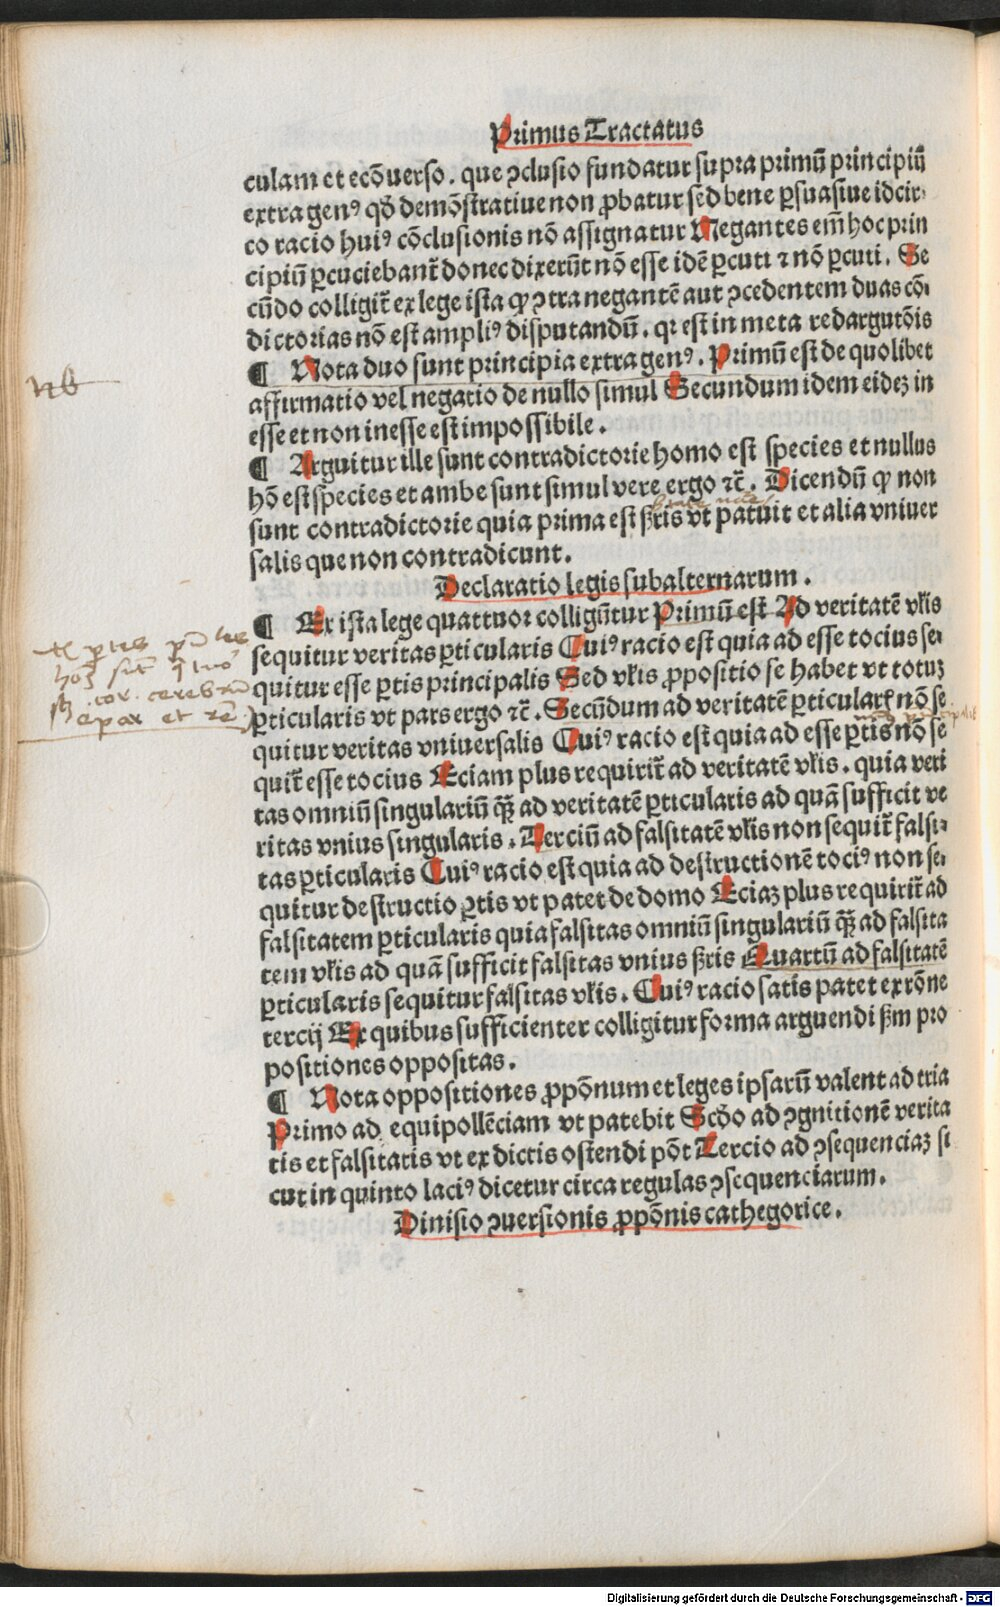 Primus Tractatus
culam et ecōuerso. que ↄclusio fundatur supra primū principiū
extra genꝰ qð demōstratiue non ꝓbatur sed bene ꝑsuasiue idcir-
co racio huiꝰ cōclusionis nō assignatur Negantes em̄ hoc prin
cipiū ꝑcuciebant̄ donec dixerūt nō esse idē ꝑcuti ⁊ nō ꝑcuti. Se
cūdo colligit̄ ex lege ista ꝙ ↄtra negantē aut ↄcedentem duas cō-
dictorias nō est ampliꝰ disputandū. qꝛ est in meta redargutōis
¶ Nota duo sunt principia extra genꝰ. Primū est de quolibet
nb
affirmatio vel negatio de nullo simul Secundum idem eidez in
esse et non inesse est impossibile.
¶ Arguitur ille sunt contradictorie homo est species et nullus
hō est species et ambe sunt simul vere ergo ⁊c̄. Dicendū ꝙ non
sunt contradictorie quia prima est ꝑticꝉris vt patuit et alia vniuer
salis que non contradicunt.
Declaratio legis subalternarum.
¶ Ex ista lege quattuor colligūtur Primū est Ad veritatē vꝉis
sequitur veritas ꝑticularis Cuiꝰ racio est quia ad esse tocius se-
quitur esse ꝑtis principalis Sed vꝉis ꝓpositio se habet vt totuz
cor. cerebrū
epar et
ꝑticularis vt pars ergo ⁊c̄. Secūdum ad veritatē ꝑticularē nō se
quitur veritas vniuersalis Cuiꝰ racio est quia ad esse ꝑtis nō se
quit̄ esse tocius Eciam plus requirit̄ ad veritatē vꝉis. quia veri
tas omniū singulariū qᷓꝫ ad veritatē ꝑticularis ad quā sufficit ve
ritas vnius singularis. Terciū ad falsitatē vꝉis non sequit̄ falsi-
tas ꝑticularis Cuiꝰ racio est quia ad destructionē tociꝰ non se-
quitur destructio ꝑtis vt patet de domo Eciaz plus requirit̄ ad
falsitatem ꝑticularis quia falsitas omniū singulariū qᷓꝫ ad falsita
tem vꝉis ad quā sufficit falsitas vnius ꝑticꝉris Quartū ad falsitatē
ꝑticularis sequitur falsitas vꝉis. Cuiꝰ racio satis patet ex rōne
tercij Ex quibus sufficienter colligitur forma arguendi ẜm pro
positiones oppositas.
¶ Nota oppositiones ꝓpōnum et leges ipsarū valent ad tria
Primo ad equipollēciam vt patebit Scðo ad ↄgnitionē verita
tis et falsitatis vt ex dictis ostendi pōt Tercio ad ↄsequenciaz si
cut in quinto laciꝰ dicetur circa regulas ↄsequenciarum.
Diuisio ↄuersionis ꝓpōnis cathegorice.
Digitalisierung gefördert durch die Deutsche Forschungsgemeinschaft - DFG